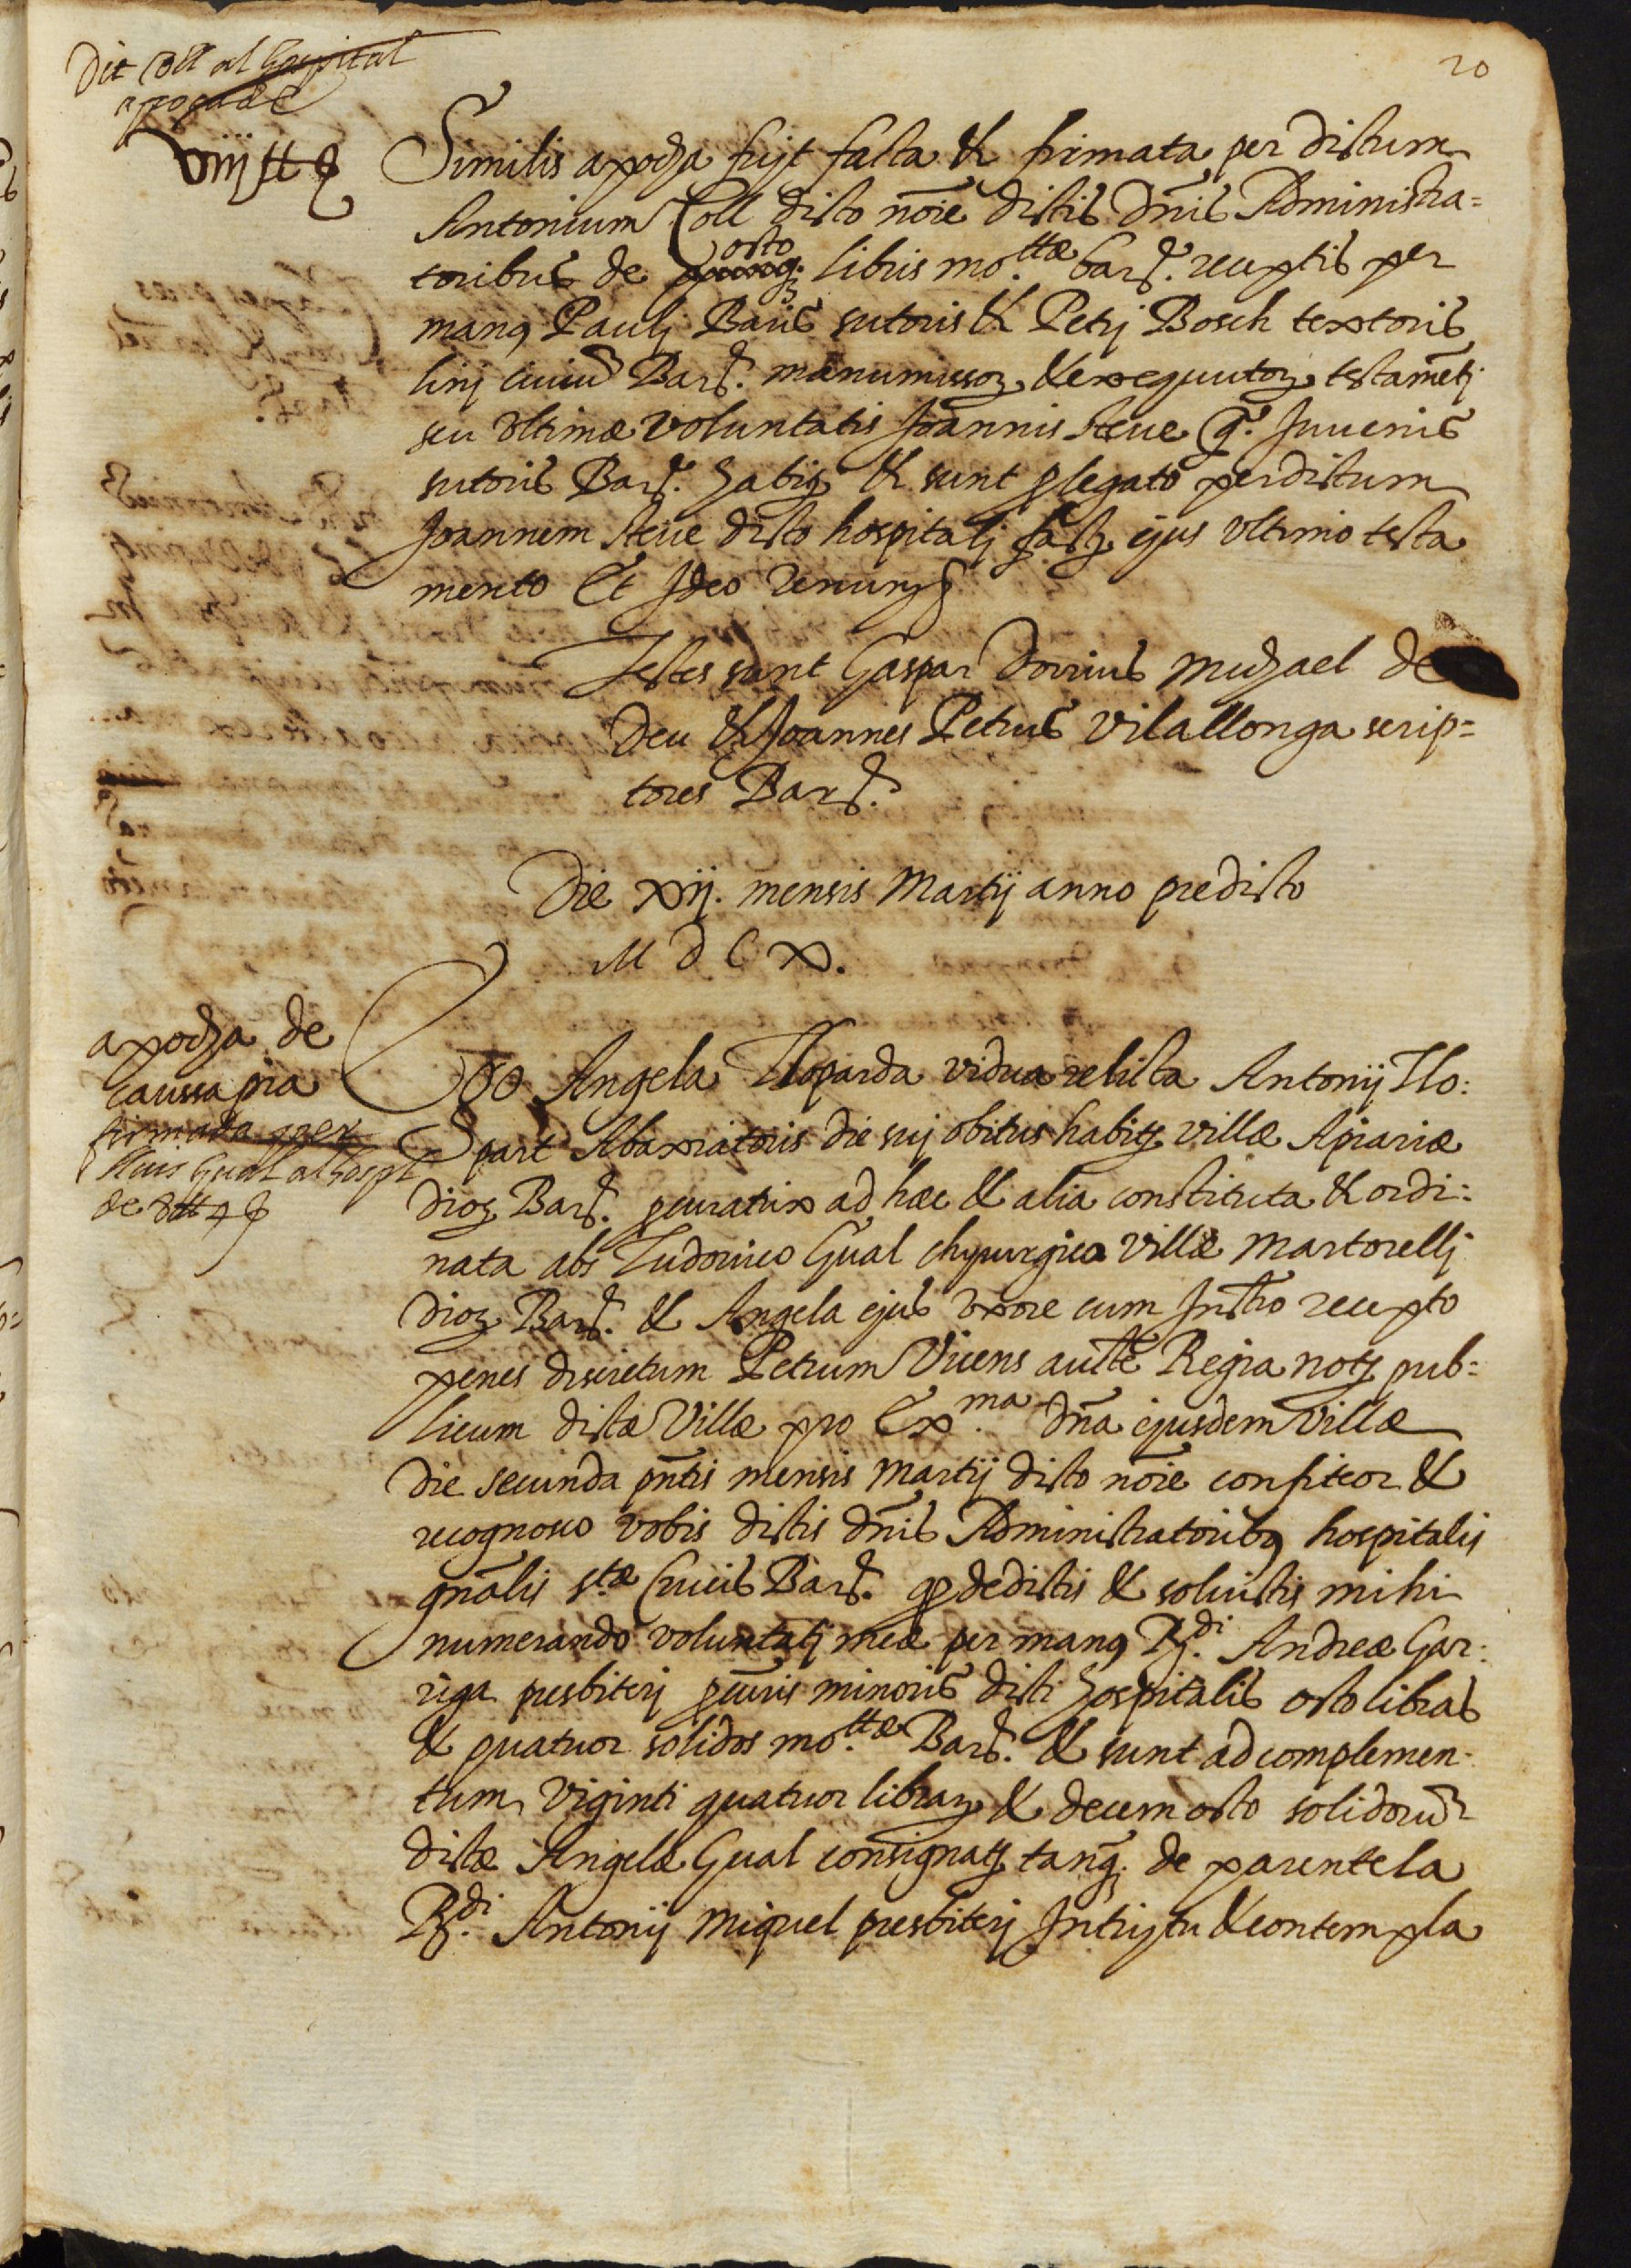 20
Dit Coll al Hospital
apoca de
viij ₶ §
Similis apocha fuit facta & firmata per dictum
Antonium Coll dicto nõie dictis dñis Administra=
toribus de octo libris mo.ttæ barñ. receptis per
manꝰ Pauli Baris sutoris & Petri Bosch textoris
lini civiũ Barñ. manumissoꝝ & exequutoꝝ testamẽti
seu ultimæ voluntatis Joannis Steve q̃. Juvenis
sutoris Barñ. habitꝫ & sunt ꝓ legato per dictum
Joannem Steve dicto hospitali factꝫ ejus ultimo testa
mento Et Ideo renunꝭ
Testes sunt Gaspar Dorrius Michael de
Deu & Joannes Petrus Vilallonga scrip=
tores Barñ.
Die xij. mensis Martij anno predicto
M D C X.
apocha de
caussa pia
firmada per
Lluis Gual al hospl
de 8 ₶ 4 §
Ego Angela Lloparda vidua relicta Antonij Llo:
part Abaxiatoris die sui obitus habitꝫ villæ Apiariæ
dioꝫ Barñ. ꝓcuratrix ad hæc & alia constituta & ordi:
nata abs Ludovico Gual chyrurgico Villæ Martorelli
dioꝫ Barñ. & Angela ejus uxore cum Instro recepto
penes discretum Petrum Vicens autте Regia notꝫ pub=
licum dictæ Villæ pro Ex.ma Dña ejusdem Villæ
die secunda pñtis mensis Martij dicto nõie confiteor &
recognosco vobis dictis dñis Administratoribꝰ hospitalis
gñalis stæ Crucis Barñ. ꝙ dedistis & solvistis mihi
numerando voluntati meæ per manꝰ Rdi. Andreæ Gar:
riga presbiteri ꝓcuris minoris dicti hospitalis octo libras
& quatuor solidos mo.ttæ Barñ. & sunt ad complemen
tum viginti quatuor libraꝝ & decem octo solidorũ
dictæ Angelæ Gual consignatꝫ tanq̃. de parentela
Rdi. Antonij Miquel presbiteri Intuytu & contempla